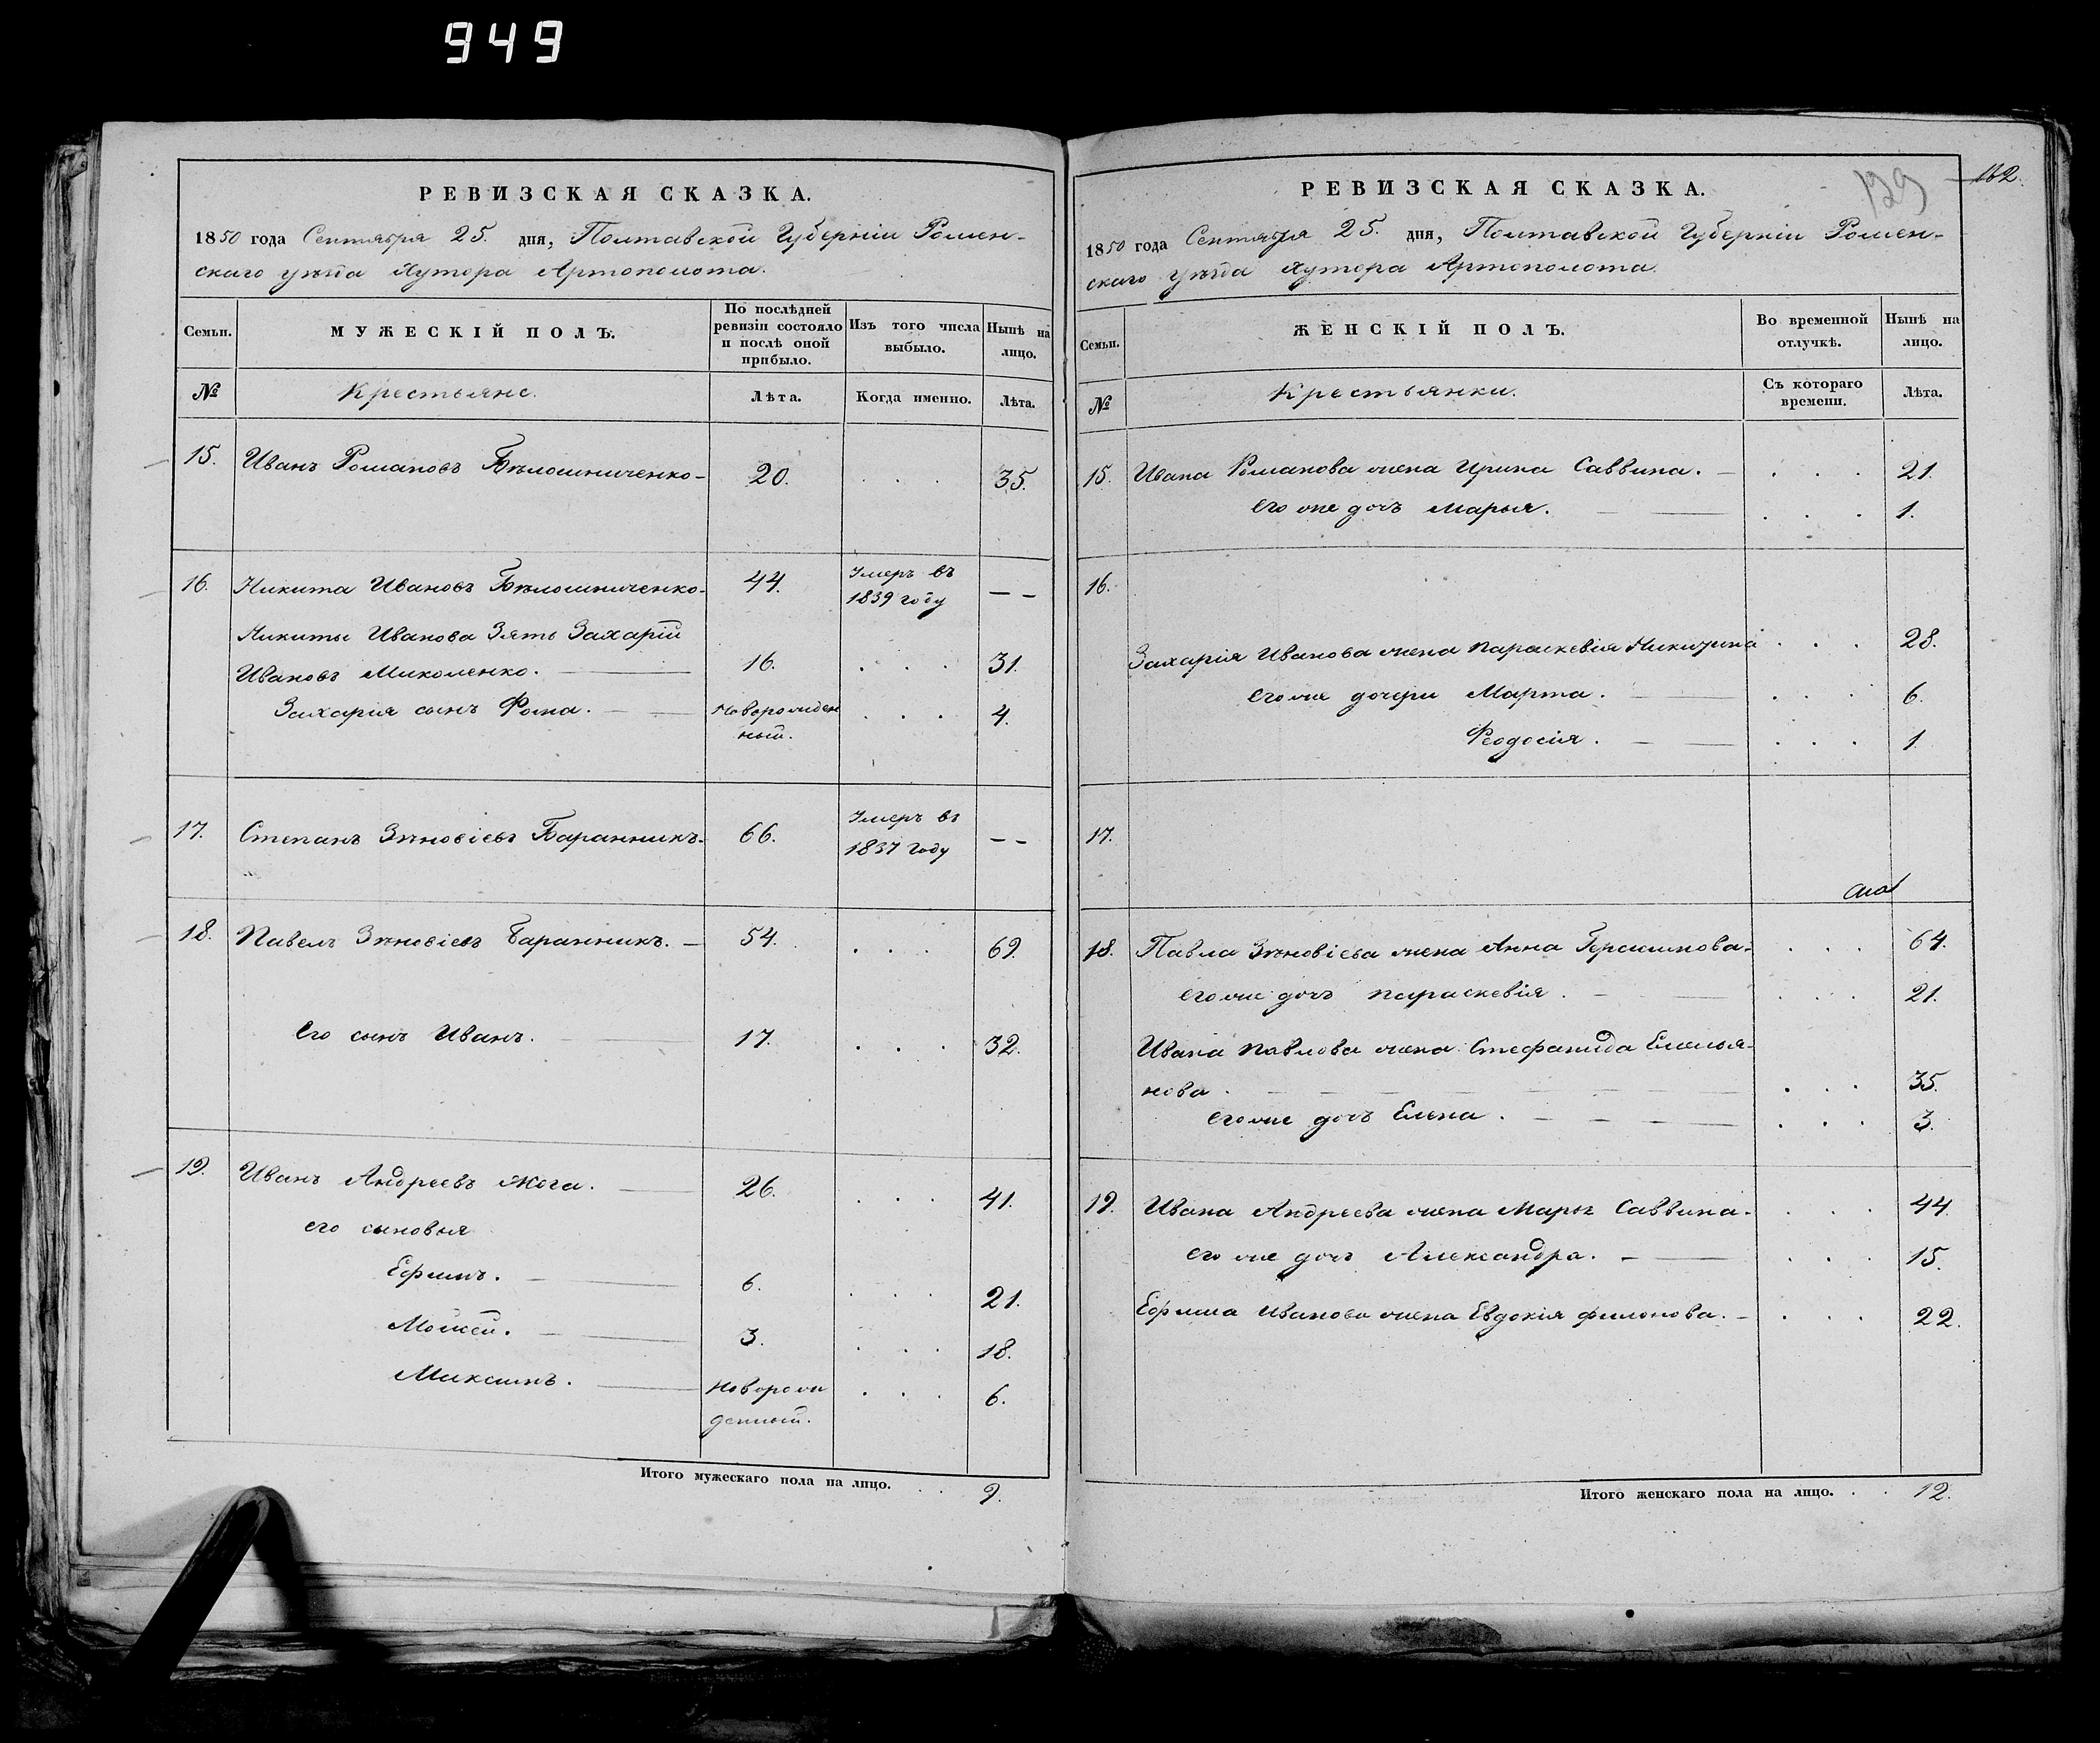 949
РЕВИЗСКАЯ СКАЗКА.
1850 года Сентября 25. дня, Полтавской Губерніи Ромен-
скаго уѣзда Хутора Артополота.
Семьи.
МУЖЕСКІЙ ПОЛЪ.
По послѣдней ревизіи состояло и послѣ оной прибыло.
Изъ того числа выбыло.
Нынѣ на лицо.
№
Крестьяне.
Лѣта.
Когда именно.
Лѣта.
15. Иванъ Романовъ Бѣлошниченко- 20. . . . 35.
16. Никита Ивановъ Бѣлошниченко- 44. Умеръ въ 1839 году — —
Никиты Иванова Зять Захарій
Ивановъ Миколенко. 16. . . . 31.
Захарія сынъ Фома. Новорожден ный. . . . 4.
17. Степанъ Зѣновіевъ Баранникъ. 66. Умеръ въ 1837 году — —
18. Павелъ Зѣновіевъ Баранникъ. 54. . . . 69.
Его сынъ Иванъ. 17. . . . 32.
19. Иванъ Андреевъ Жога. 26. . . . 41.
его сыновья
Ефимъ. 6. . . . 21.
Мойсей. 3. . . . 18.
Максимъ. Наворож денный. . . . 6.
Итого мужескаго пола на лицо. . . 9.
129
162.
РЕВИЗСКАЯ СКАЗКА.
1850 года Сентября 25. дня, Полтавской Губерніи Ромен-
скаго уѣзда Хутора Артополота.
Семьи.
ЖЕНСКІЙ ПОЛЪ.
Во временной отлучкѣ.
Нынѣ на лицо.
№
Крестьянки.
Съ котораго времени.
Лѣта.
15. Ивана Романова жена Ирина Саввина. . . . 21.
его же дочъ Марья. . . . 1.
16.
Захарія Иванова жена Параскевія Никитина . . . 28.
его же дочери Марта. . . . 6.
Феодосія. . . . 1.
17.
18. Павла Зѣновіева жена Анна Герасимова- . . . 64.
его же дочъ Параскевія. . . . 21.
Ивана Павлова жена Стефанида Емелья-
нова. . . . 35.
его же дочъ Елена. . . . 3.
19. Ивана Андреева жена Марья Саввина. . . . 44.
его же дочъ Александра. . . . 15.
Ефима Иванова жена Евдокія Филонова. . . . 22.
Итого женскаго пола на лицо. . . 12.